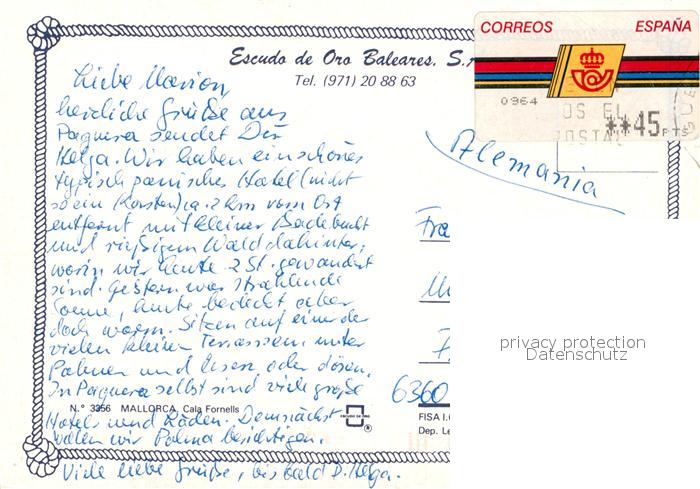 CORREOS ESPAÑA
Escudo de Oro Baleares. S.
Tel. (971) 20 88 63
0964
OS EL
POSTAL
**45 PTS
Alemania
Liebe Marion
herzliche Grüße aus
Paguera sendet Dir
Helga. Wir haben ein schönes
typisch panisches Hotel (nicht
so ein Kasten) ca. 2 km vom Ort
entfernt mit kleiner Badebucht
und riesigem Wald dahinter,
worin wir heute 2 St. gewandert
sind. Gestern war strahlende
Sonne, heute bedeckt aber
doch warm. Sitzen auf einer der
vielen kleinen Terrassen unter
Palmen und lesen oder dösen.
In Paguera selbst sind viele große
Hotels und Läden. Demnächst
wollen wir Palma besichtigen.
Viele liebe Grüße, bis bald D. Helga.
Fra
6360
N.° 3356 MALLORCA. Cala Fornells
ESCUDO DE ORO
®
FISA I.
Dep. Le
privacy protection
Datenschutz